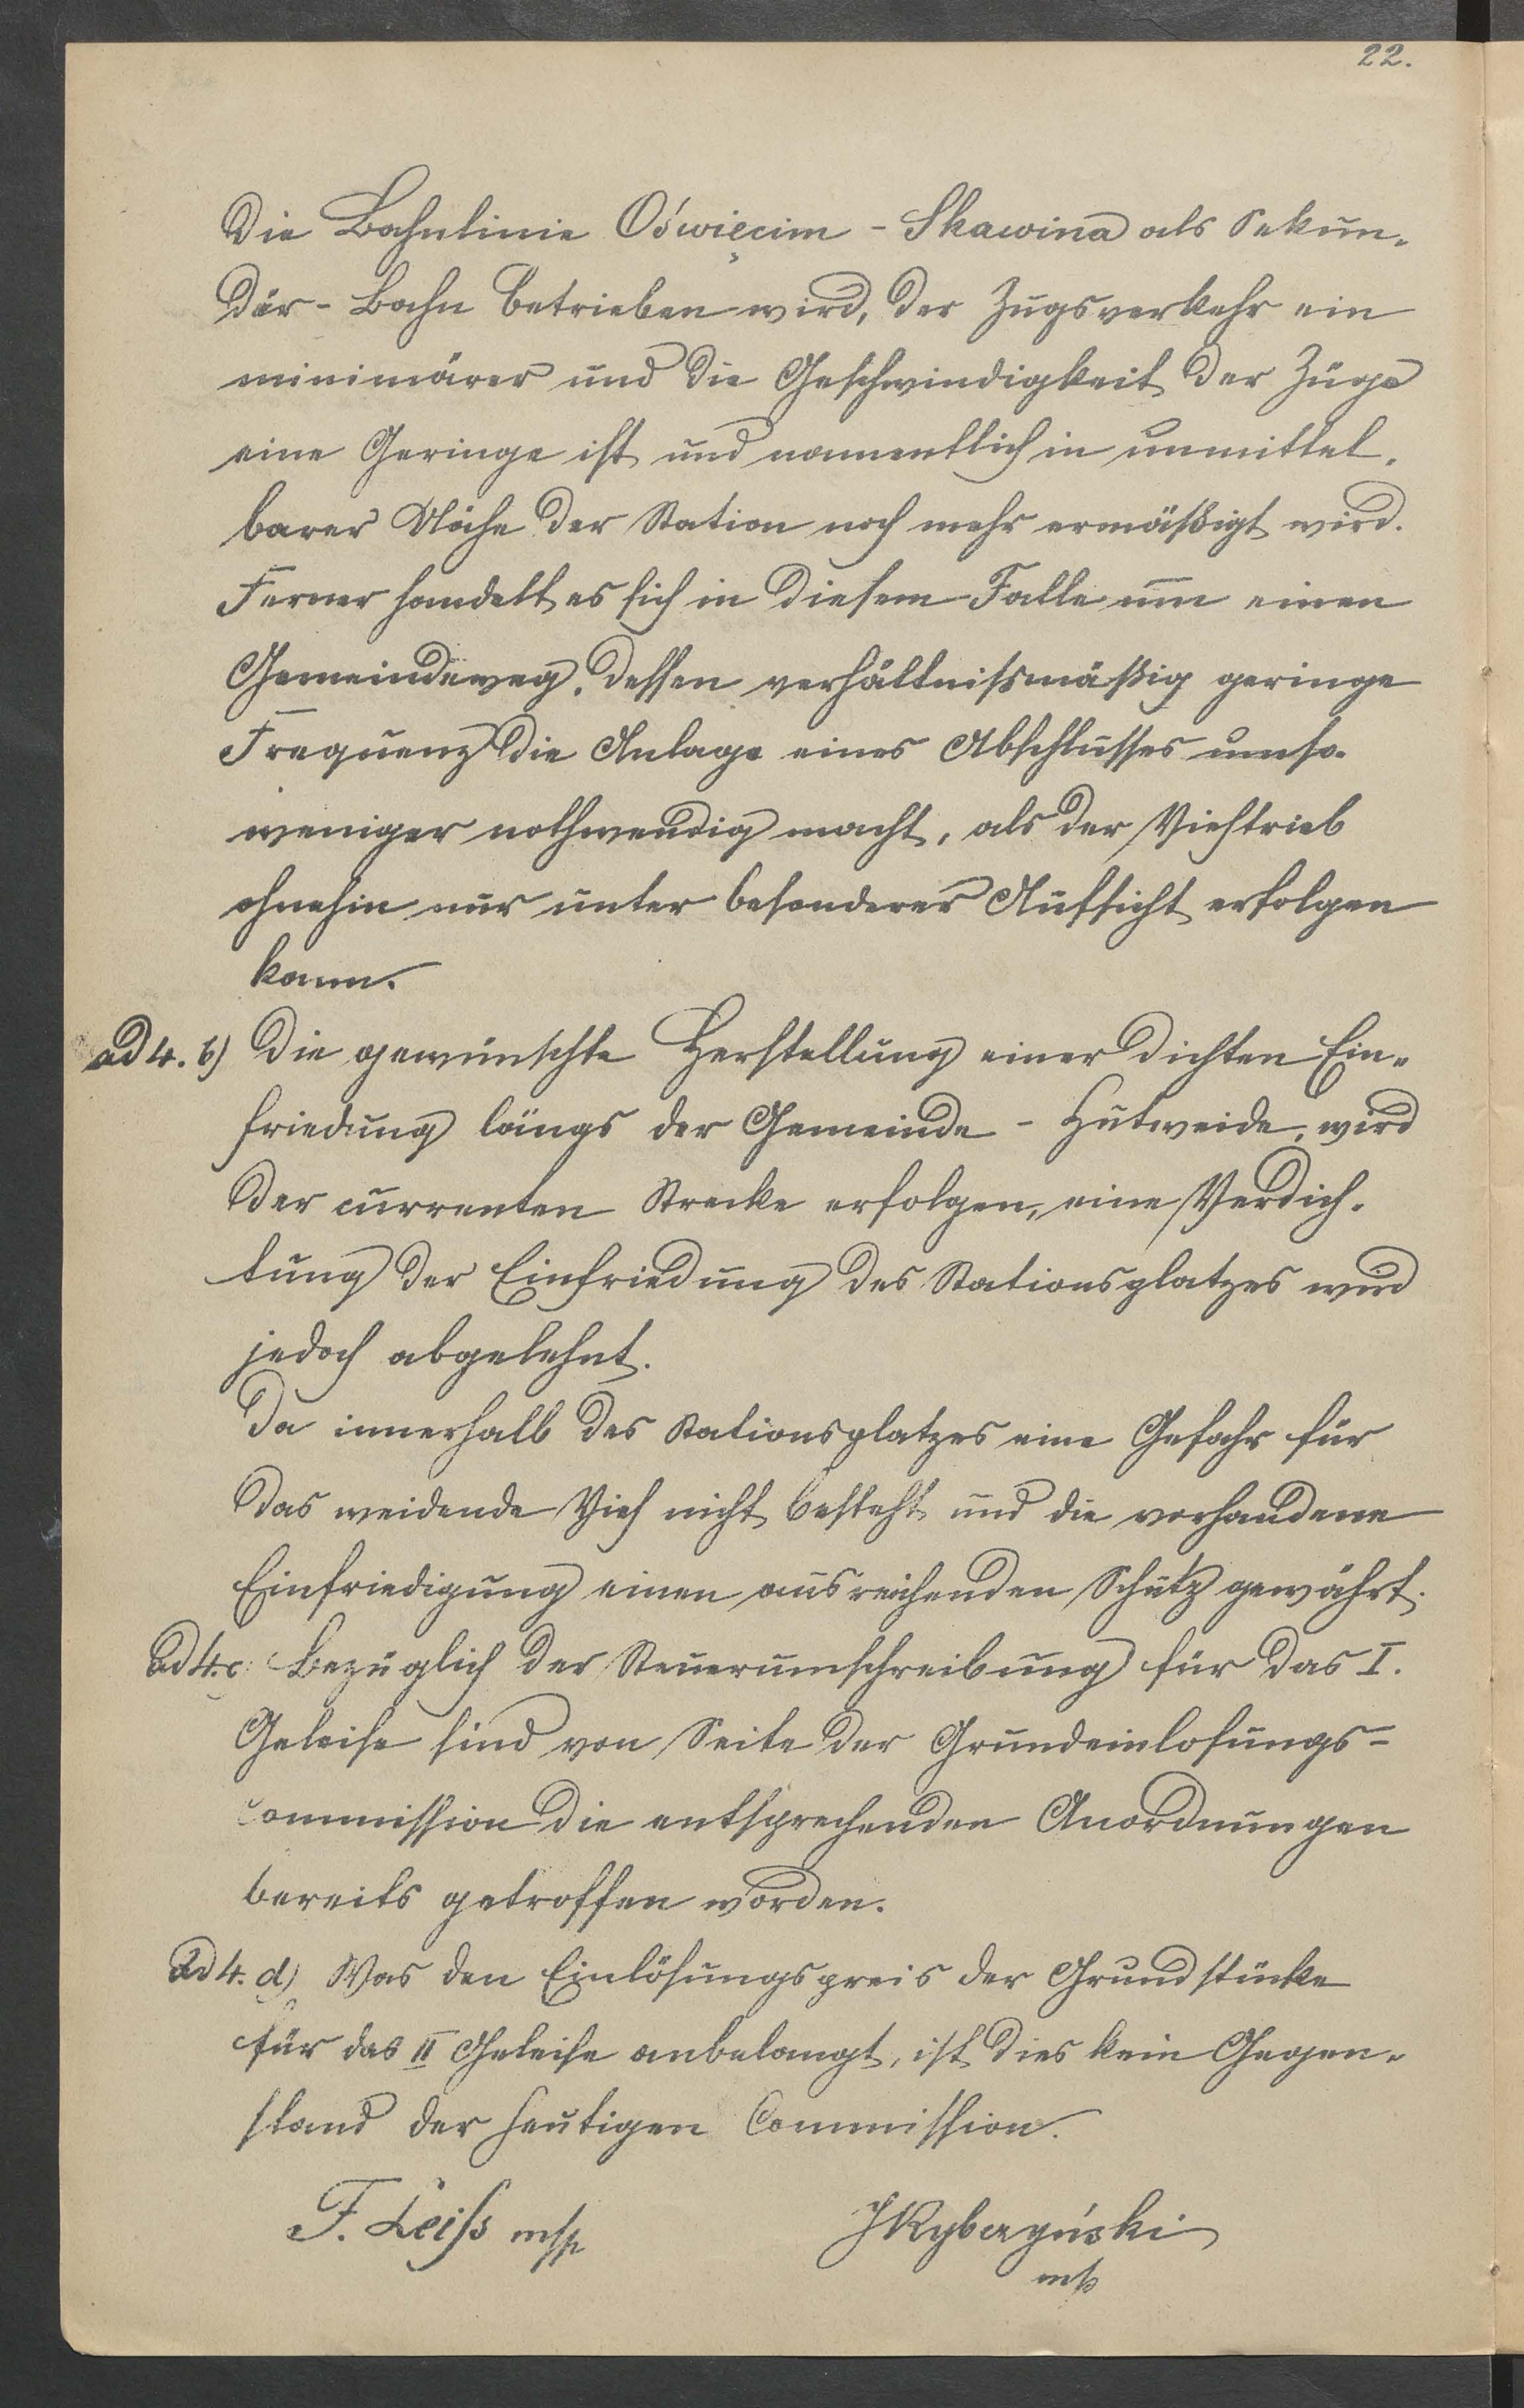 22.
Die Bahnlinie Oświęcim - Skawina als Sekun-
där-Bahn betrieben wird, der Zugsverkehr ein
minimärer und die Geschwindigkeit der Züge
eine Geringe ist und namentlich in unmittel-
barer Nähe der Station noch mehr ermäßigt wird.
Ferner handelt es sich in diesem Falle um einen
Gemeindeweg, dessen verhältnißmäßig geringe
Frequenz die Anlage eines Abschlusses umso-
weniger nothwendig macht, als der Viehtrieb
ohnehin nur unter besonderer Aufsicht erfolgen
kann.
ad 4. b) Die gewünschte Herstellung einer dichten Ein-
friedung längs der Gemeinde - Hutweide, wird
der currenten Strecke erfolgen, eine Verdich-
tung der Einfriedung des Stationsplatzes wird
jedoch abgelehnt.
Da innerhalb des Stationsplatzes eine Gefahr für
das weidende Vieh nicht besteht und die vorhandene
Einfriedigung einen ausreichenden Schutz gewährt.
ad 4. c: Bezüglich der Steuerumschreibung für das I.
Geleise sind von Seite der Grundeinlosungs-
commission die entsprechenden Anordnungen
bereits getroffen worden.
ad 4. d) Was den Einlösungspreis der Grundstücke
für das II Geleise anbelangt, ist dies kein Gegen-
stand der heutigen Commission.
F. Leiss m/p
m/p